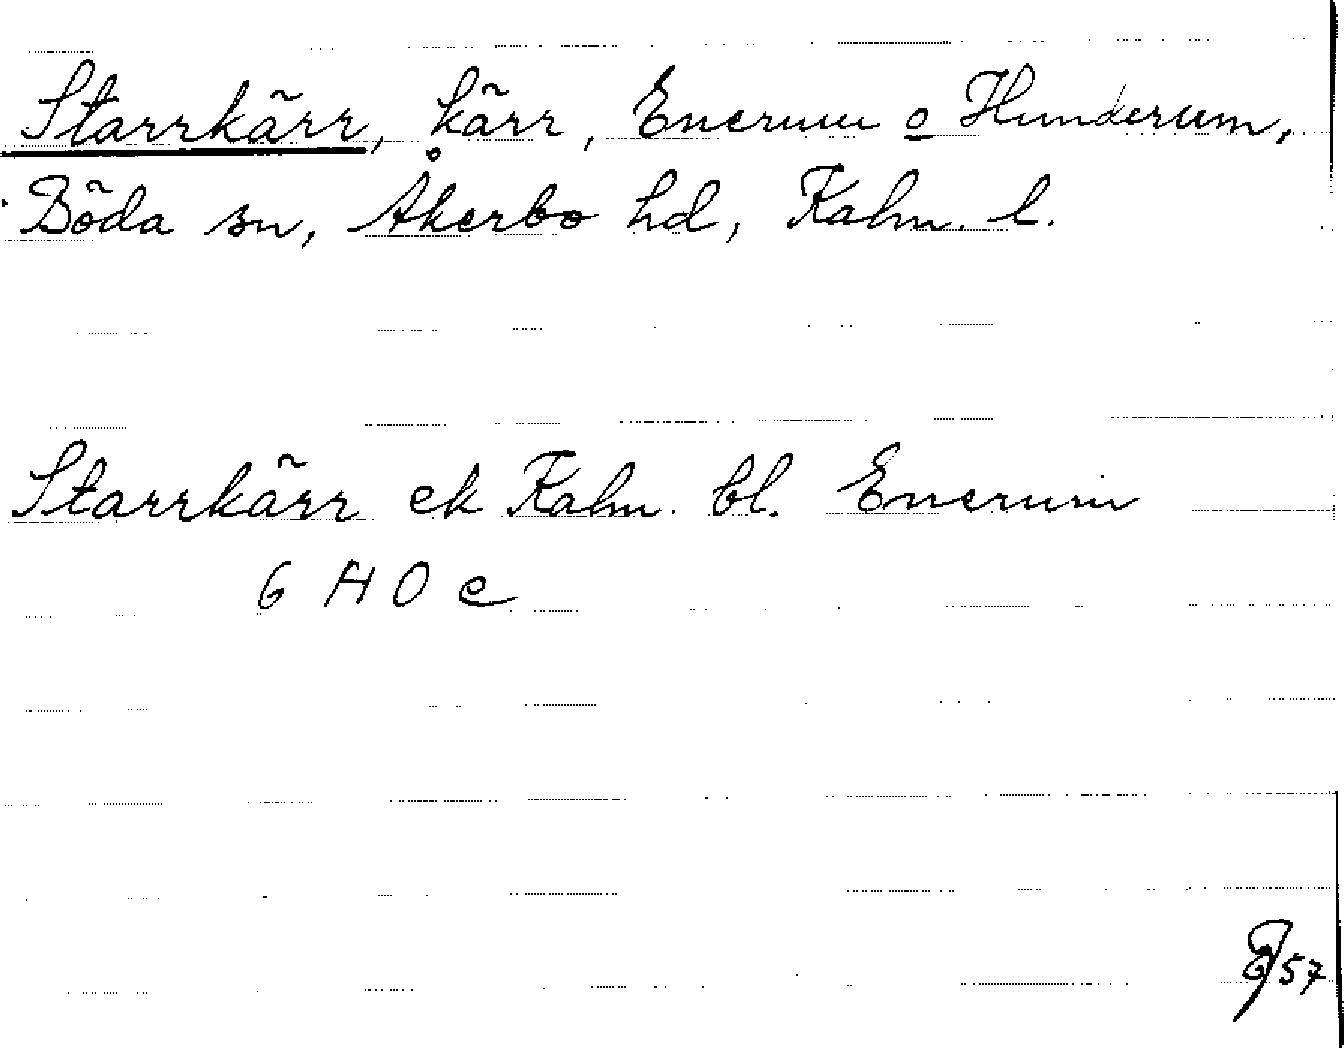 Starrkärr, kärr, Enerum o Hunderum,
Böda sn, Åkerbo hd, Kalm. l.
Starrkärr ek Kalm. bl. Enerum
6 H 0 e
57